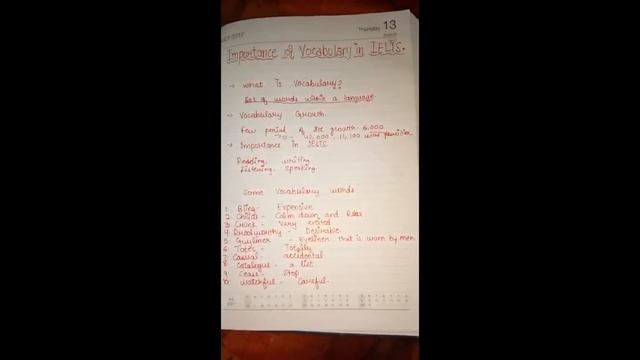 Thursday 13
Importance of Vocabulary in IELTS.
→ What is Vocabulary?
Set of words within a language
→ Vocabulary Growth.
Few period of growth - 6,000
→ Importance in IELTS
Reading. writing
Listening. Speaking.
Some Vocabulary words
1. Bling - Expensive
2. - Calm down and Relax
3. Crunk - Very excited
4. - Desirable
5. Guyliner - Eyeliner that is warn by men.
6. Totes - Totally
7. Casual - accidental
8. Catalogue - a list
9. Cease - Stop
10. Watchful - Careful.